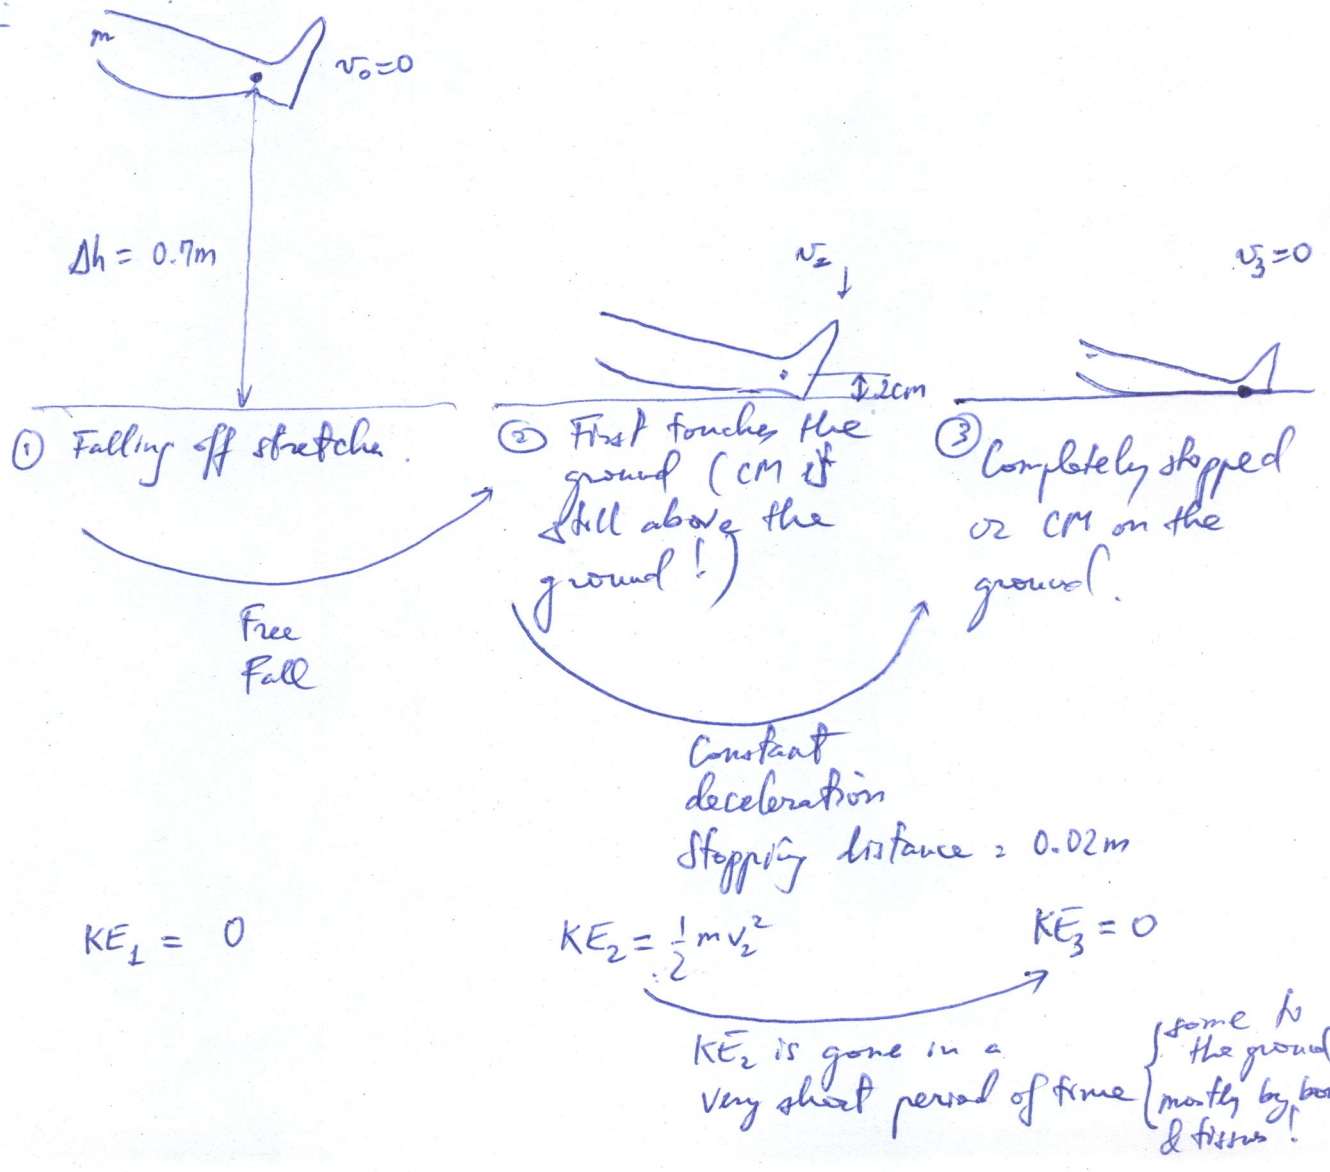 m
v₀=0
Δh = 0.7m
v₂
2cm
v₃=0
① Falling off stretcher.
② First touches the
ground (CM is
still above the
ground!)
③ Completely stopped
or CM on the
ground.
Free
Fall
Constant
deceleration
Stopping distance = 0.02m
KE₁ = 0
KE₂ = ½ mv₂²
KE₃ = 0
KE₂ is gone in a
very short period of time
some to
the ground
mostly by
& tissus!